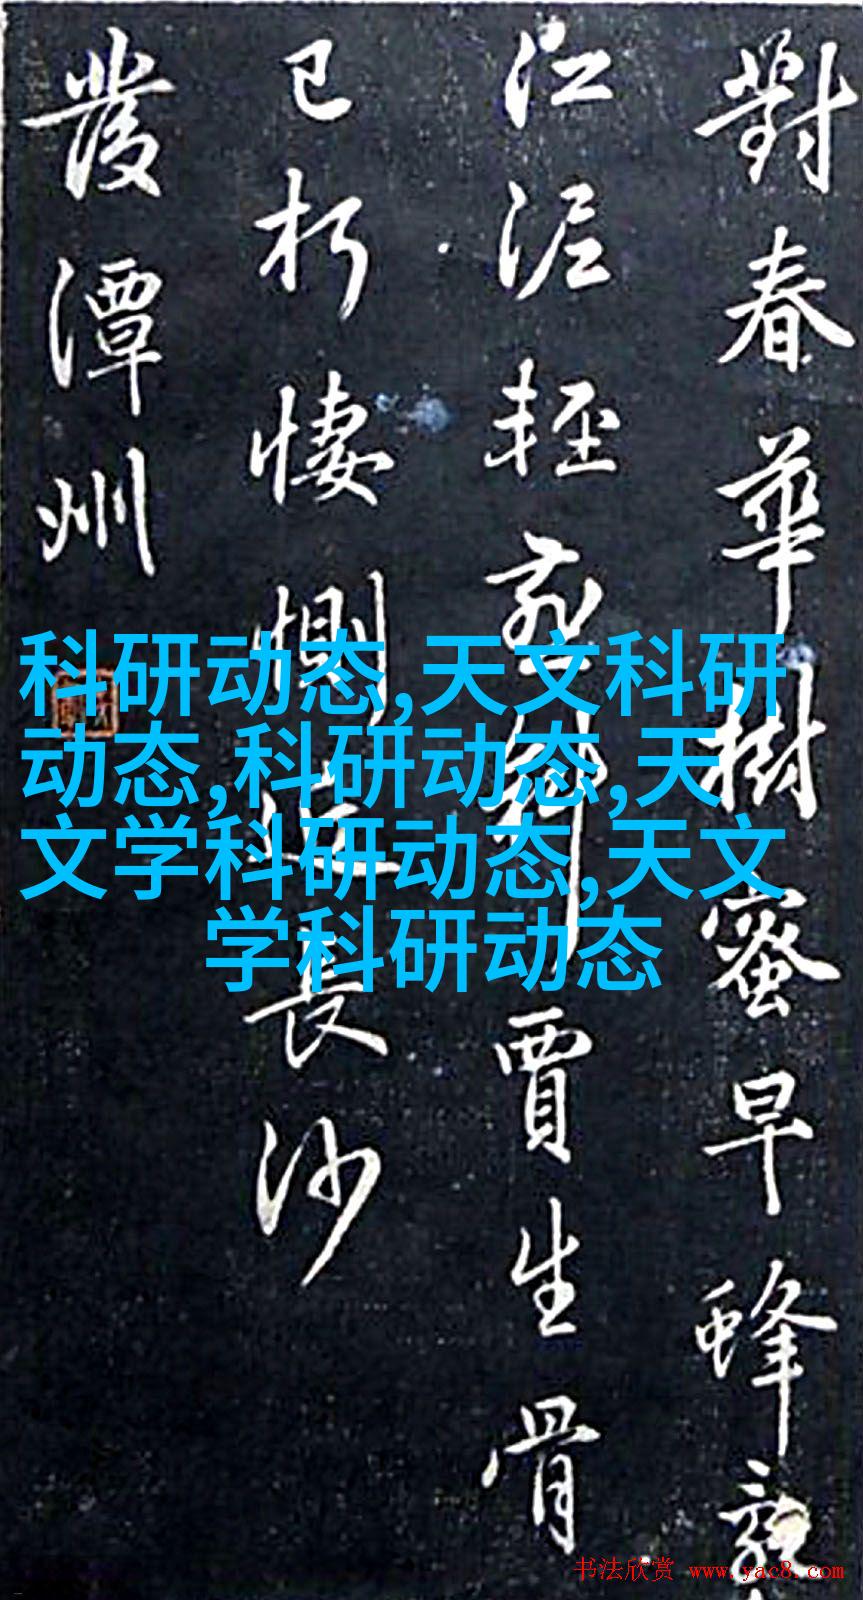 對春華樹蜜早蜂
江泥輕燕斜賈生骨
已朽悽惻近長沙
發潭州
科研动态,天文科研
动态,科研动态,天
文学科研动态,天文
学科研动态
书法欣赏 www.yac8.com